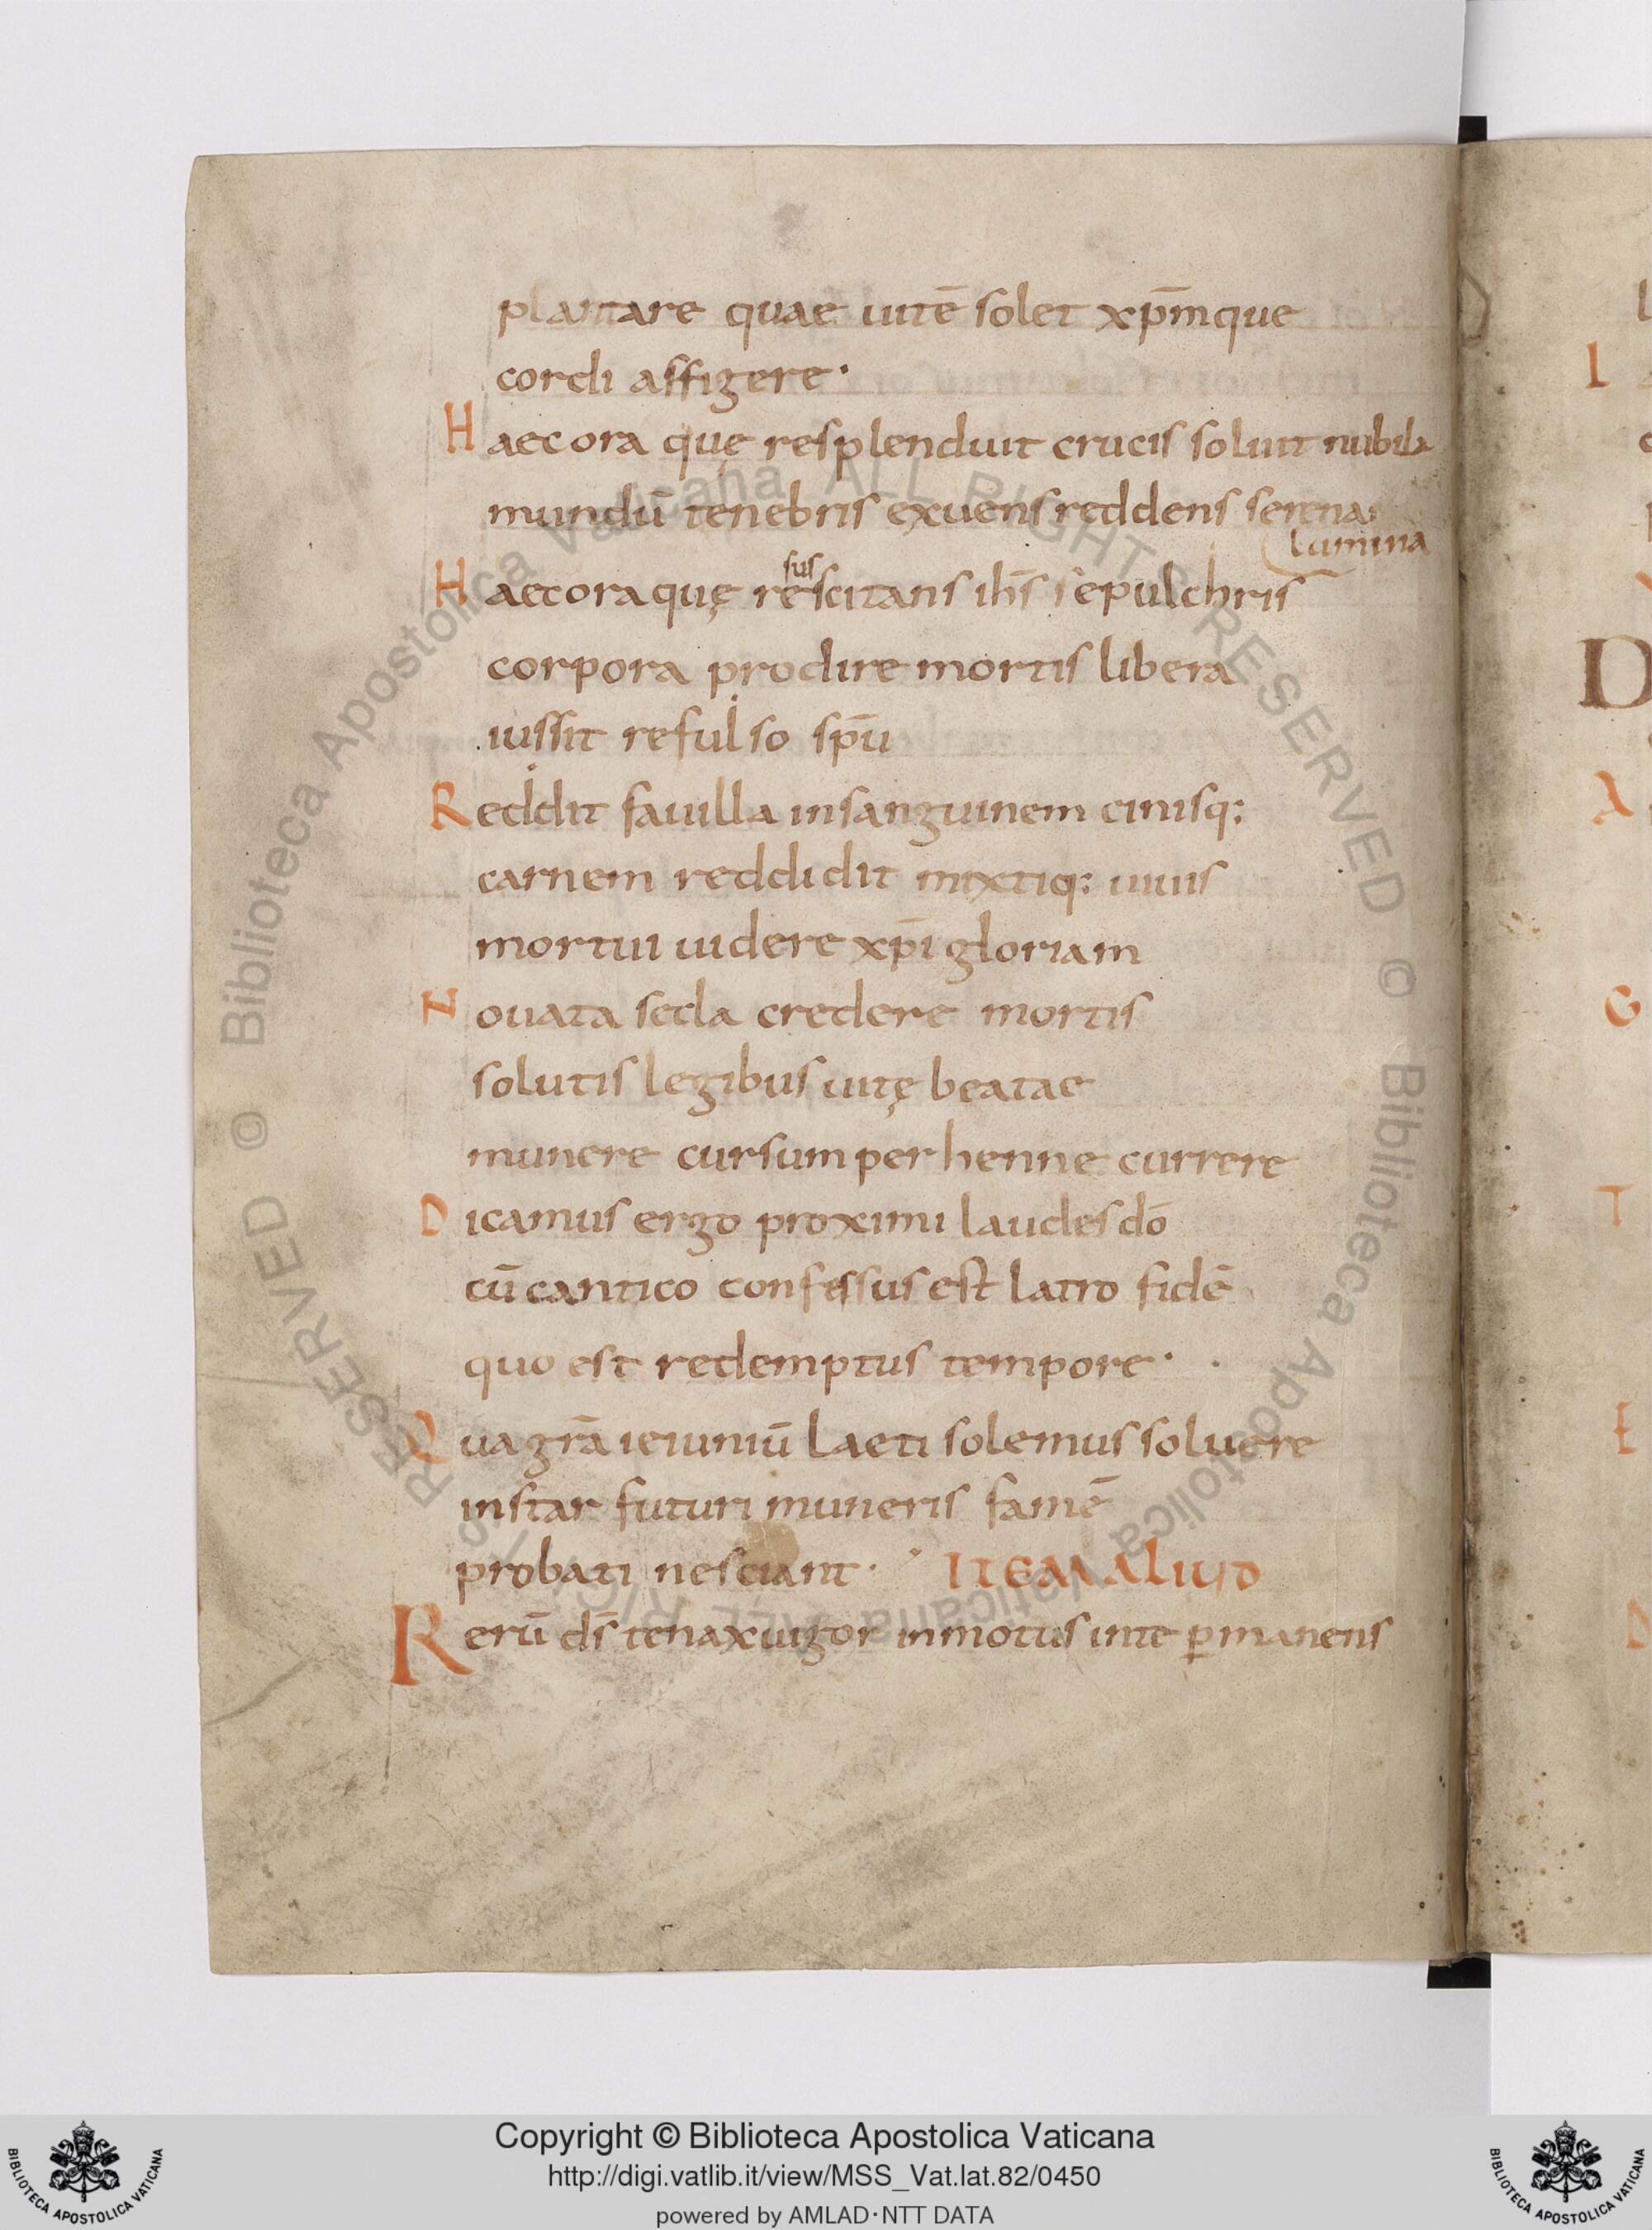 plantare quae uitē solet xp̄mque
cordi affigere·
Haec ora quę resplenduit crucis soluit nubila
mundū tenebris exuens reddens serena
lumina
sus
Haec ora quę rescitans ih̄s sepulchris
corpora prodire mortis libera
iussit refulso sp̄u
Reddit fauilla in sanguinem cinisq:
carnem reddidit mixtiq: uiuis
mortui uidere xp̄i gloriam
Nouata secla credere mortis
solutis legibus uitę beatae
munere cursum perhenne currere
Dicamus ergo proximi laudes dō
cū cantico confessus est latro fidē
quo est redemptus tempore·
Qua gr̄a ieiuniū laeti solemus soluere
instar futuri muneris famē
probati nesciant· ITEM ALIUD
Rerū ds̄ tenax uigor inmotus in te ꝑmanens
RESERVED © Biblioteca Apostolica Vaticana ALL RIGHTS RESERVED © Biblioteca Apostolica Vaticana ALL RIGHTS
Copyright © Biblioteca Apostolica Vaticana
http://digi.vatlib.it/view/MSS_Vat.lat.82/0450
powered by AMLAD·NTT DATA
BIBLIOTECA APOSTOLICA VATICANA
BIBLIOTECA APOSTOLICA VATICANA